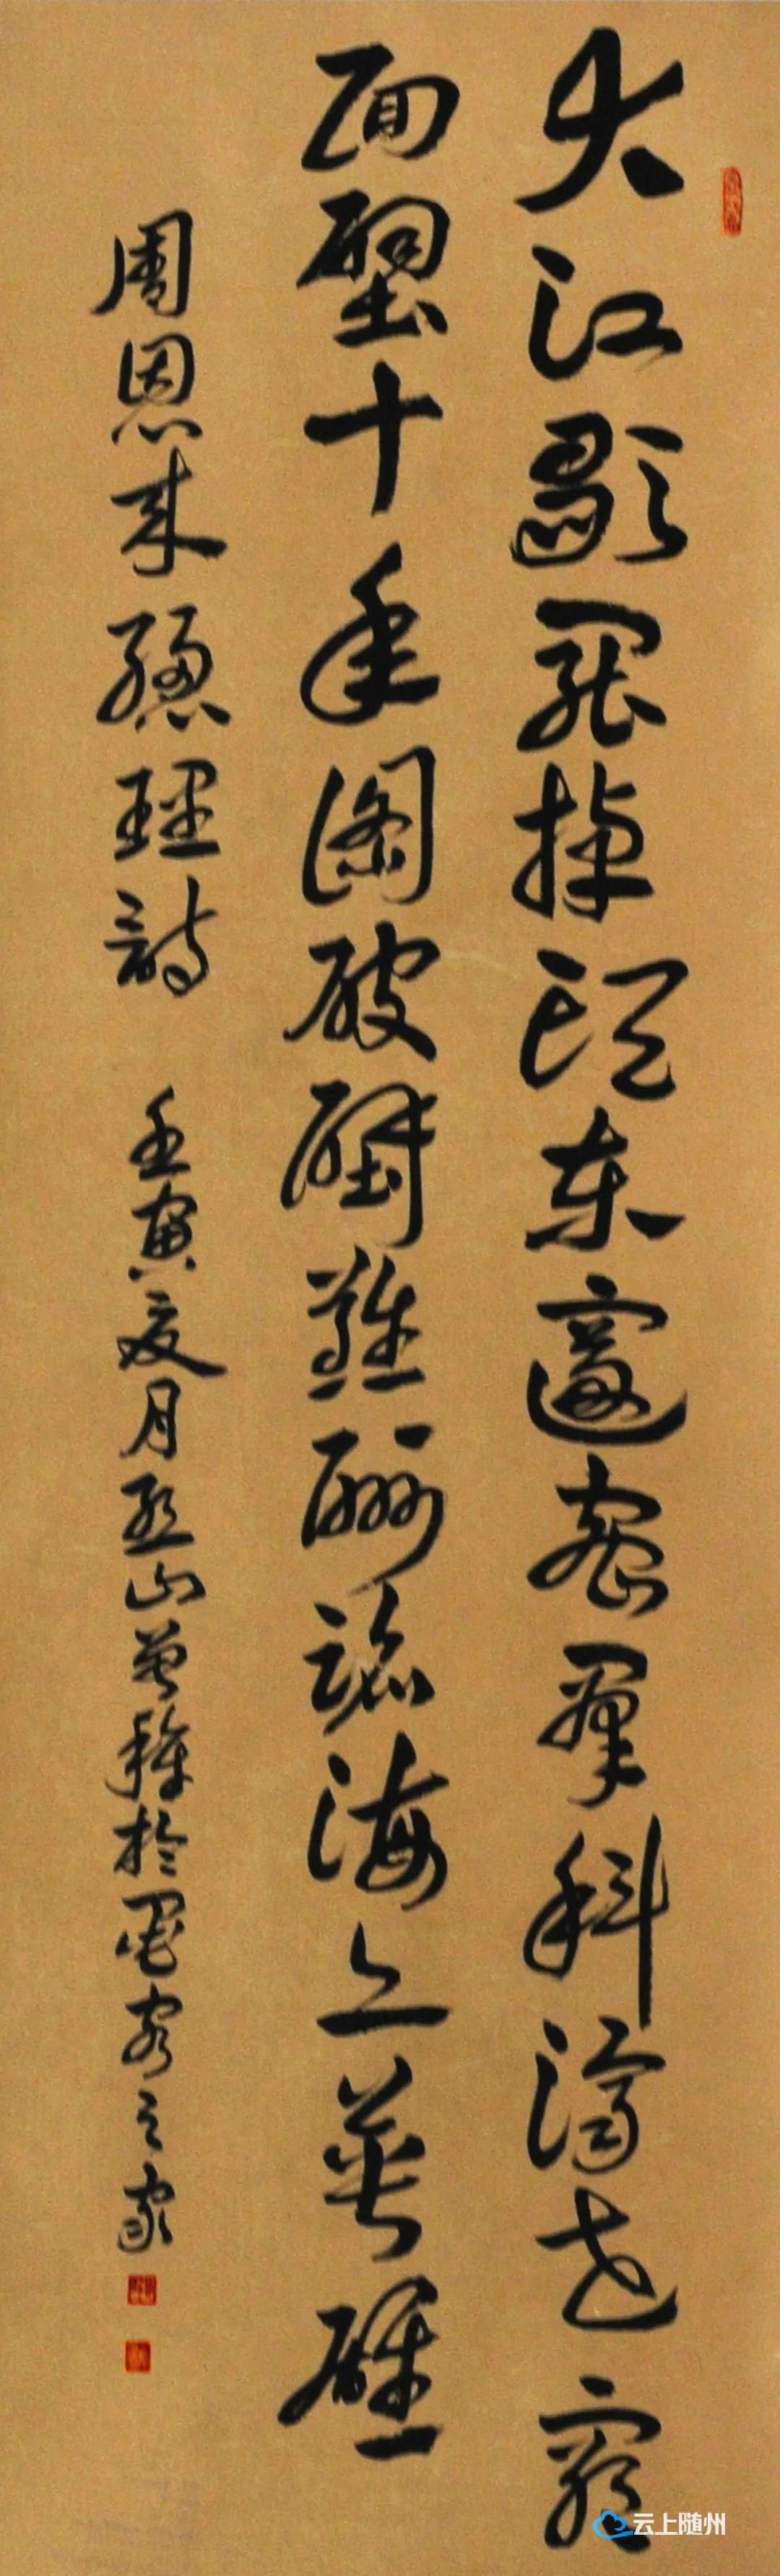 大江歌罷掉頭東邃密群科濟世窮
面壁十年圖破壁難酬蹈海亦英雄
周恩來總理詩 壬寅夏月烈山曾於墨客之家
云上随州